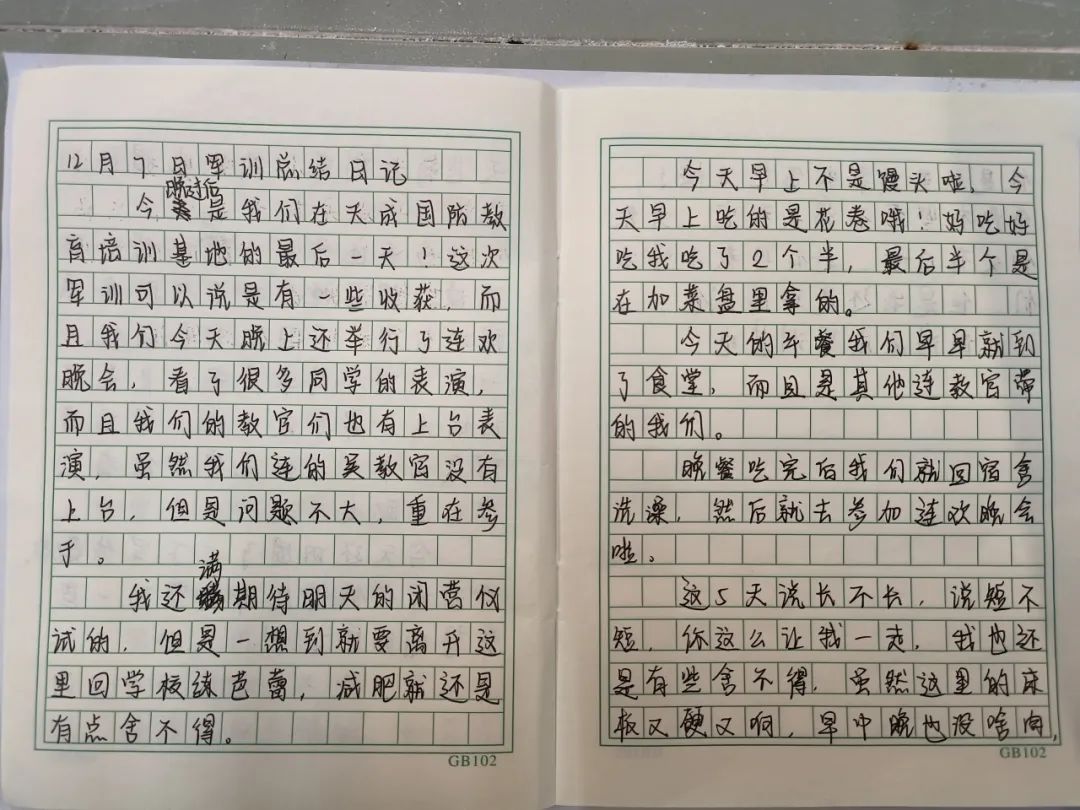 12月7日军训总结日记
晚过后
今是我们在天成国防教
育培训基地的最后一天！这次
军训可以说是有一些收获，而
且我们今天晚上还举行了连欢
晚会，看了很多同学的表演，
而且我们的教官们也有上台表
演，虽然我们连的吴教官没有
上台，但是问题不大，重在参
手。
满
我还期待明天的闭营仪
试的，但是一想到就要离开这
里回学校练芭蕾，减肥就还是
有点舍不得。
GB102
今天早上不是馒头啦，今
天早上吃的是花卷哦！好吃好
吃我吃了2个半，最后半个是
在加菜盘里拿的。
今天的午餐我们早早就到
了食堂，而且是其他连教官带
的我们。
晚餐吃完后我们就回宿舍
洗澡，然后就去参加连欢晚会
啦。
这5天说长不长，说短不
短，你这么让我一走，我也还
是有些舍不得，虽然这里的床
板又硬又响，早中晚也没啥肉，
GB102